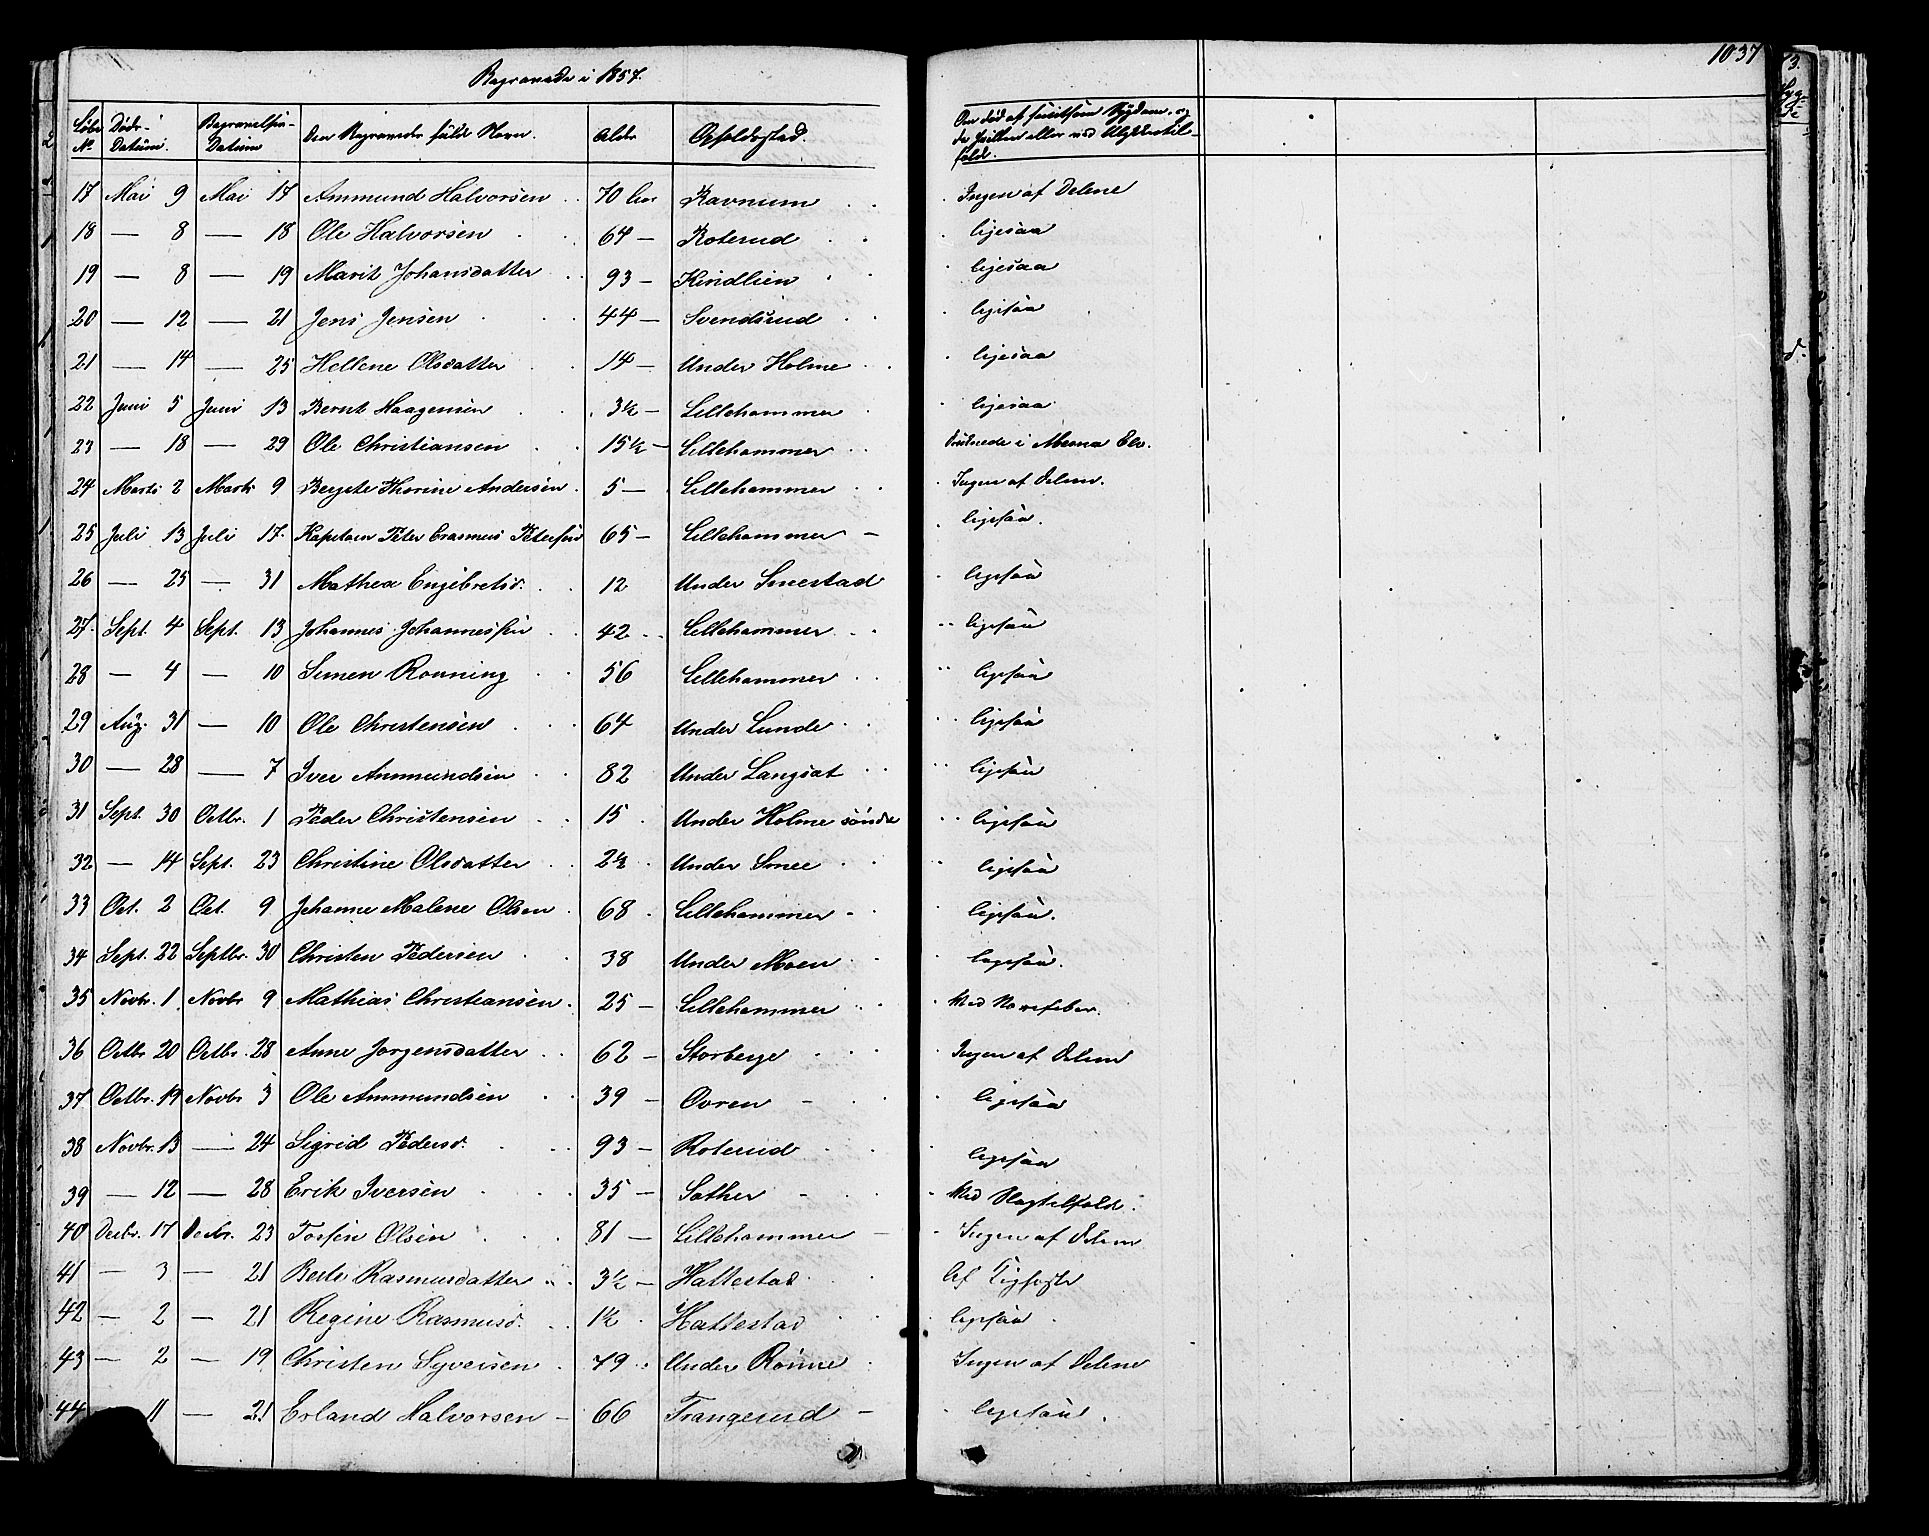 1037
Begravede i 1857.
Løbe No. Døds-Datum. Begravelses-Datum Den Begravedes fulde Navn. Alder Opholdsstad. Om död af smitsom Sygdom, og
de hvilken eller ved Ulykkestil-
fælde.
17 Mai 9 Mai 17 Ammund Halvorsen 70 Aar Ravnum Ingen af Delene
18 — 8 — 18 Ole Halvorsen 64 — Roterud ligesaa
19 — 8 — 19 Marit Johansdatter 93 — Kindlien ligesaa
20 — 12 — 21 Jens Jensen 44 — Svendsrud ligesaa
21 — 14 — 25 Hellene Olsdatter 14 — Under Holme ligesaa
22 Juni 5 Juni 13 Bernt Haagensen 3½ — Lillehammer ligesaa
23 — 18 — 29 Ole Christiansen 15½ — Lillehammer Druknede i Mesna Elv.
24 Marts 2 Marts 9 Bergete Thorine Andersen 5 — Lillehammer Ingen af Delene.
25 Juli 13 Juli 17. Kapitain Peter Erasmus Petersen 65 — Lillehammer — ligesaa.
26 — 25 — 31 Mathea Engebretsd. 12 Under Smestad ligesaa
27. Sept. 4 Sept. 13 Johannes Johannessen 42 Lillehammer ligesaa
28 — 4 — 10 Simen Rønning 56 Lillehammer ligesaa
29 Aug. 31 — 10 Ole Christensen 64 Under Lunde ligesaa
30 — 28 — 7 Iver Ammundsen 82 Under Langsæt ligesaa
31 Sept. 30 Octbr. 1 Peder Christensen 15 Under Holme søndre ligesaa
32 — 14 Sept. 23 Christine Olsdatter 2½ Under Smee ligesaa
33 Oct. 2 Oct. 9 Johanne Malene Olsen 68 Lillehammer ligesaa.
34 Sept. 22 Septbr. 30 Christen Pedersen 38 Under Moen ligesaa.
35 Novbr. 1 Novbr 9 Mathias Christiansen 25 — Lillehammer Med Nervefeber.
36 Octbr 20 Octbr. 28 Anne Jørgensdatter 62 — Storberge Ingen af Delene
37 Octbr. 19 Novbr 3 Ole Ammundsen 39 — Ovren ligesaa
38 Novbr. 13 — 24 Sigrid Pedersd. 93 — Roterud ligesaa
39 — 12 — 28 Erik Iversen 35 — Sæther Med Slagtilfælde.
40 Decbr. 17 Decbr. 23 Torsten Olsen 81 — Lillehammer — Ingen af Delene
41 — 3 — 21 Berte Rasmusdatter 3½ — Hattestad Af
42 — 2 — 21 Regine Rasmusd. 1½ Hattestad ligesaa
43 — 2 — 19 Christen Syversen 49 Under Rønne Ingen af Delene
44 11 — 21 Erland Halvorsen — 66 Trangerud — ligesaa.